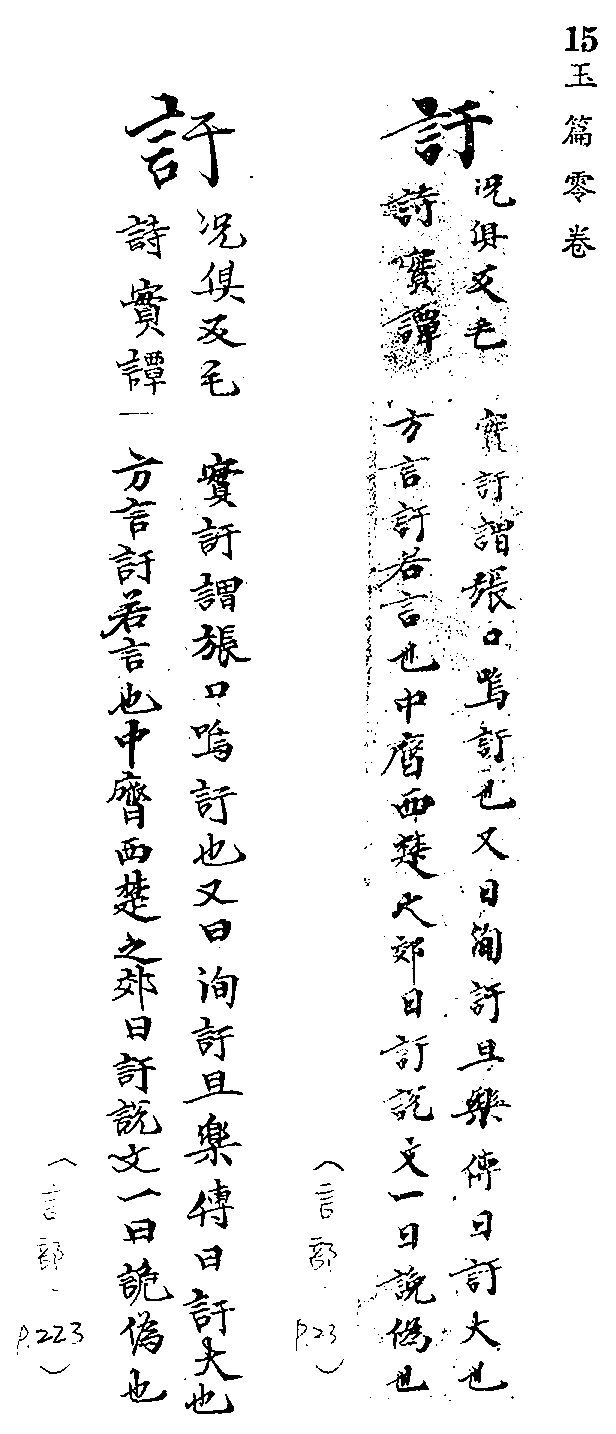 15玉篇零卷
訏
况俱反毛
詩實譚
實訏謂張口嗚訏也又曰洵訏且樂傳曰訏大也
方言訏若言也中齊西楚之郊曰訏說文一曰詭偽也
(言部·P.23)
訏
况俱反毛
詩實譚一
實訏謂張口嗚訏也又曰洵訏且樂傳曰訏大也
方言訏若言也中齊西楚之郊曰訏說文一曰詭偽也
(言部·P.223)